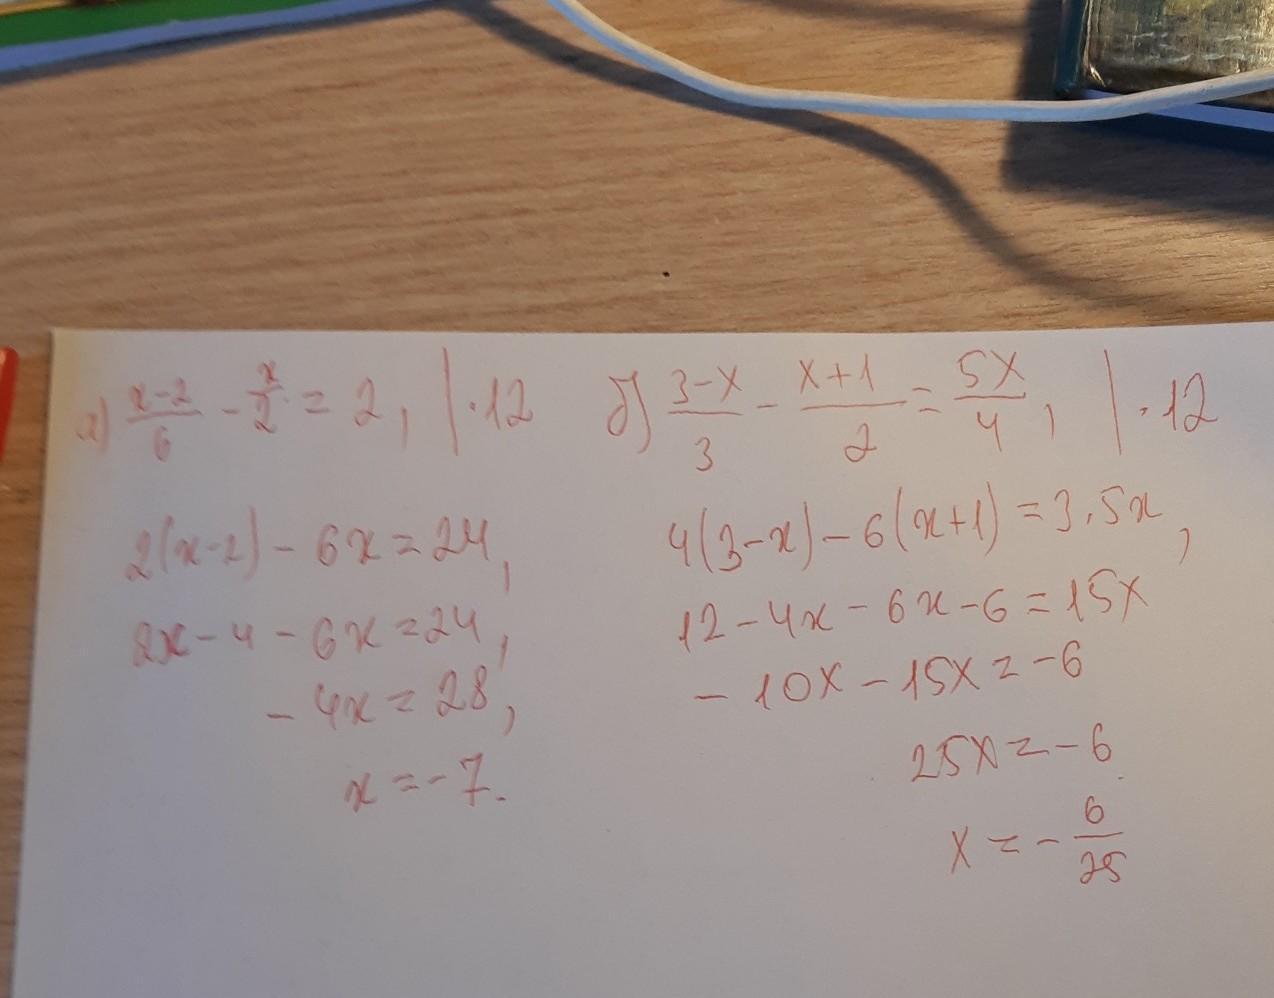 а) (x-2)/6 - x/2 = 2, | · 12
2(x-2) - 6x = 24,
2x - 4 - 6x = 24,
- 4x = 28,
x = -7.
б) (3-x)/3 - (x+1)/2 = 5x/4, | · 12
4(3-x) - 6(x+1) = 3·5x,
12 - 4x - 6x - 6 = 15x
- 10x - 15x = -6
25x = -6
x = - 6/25